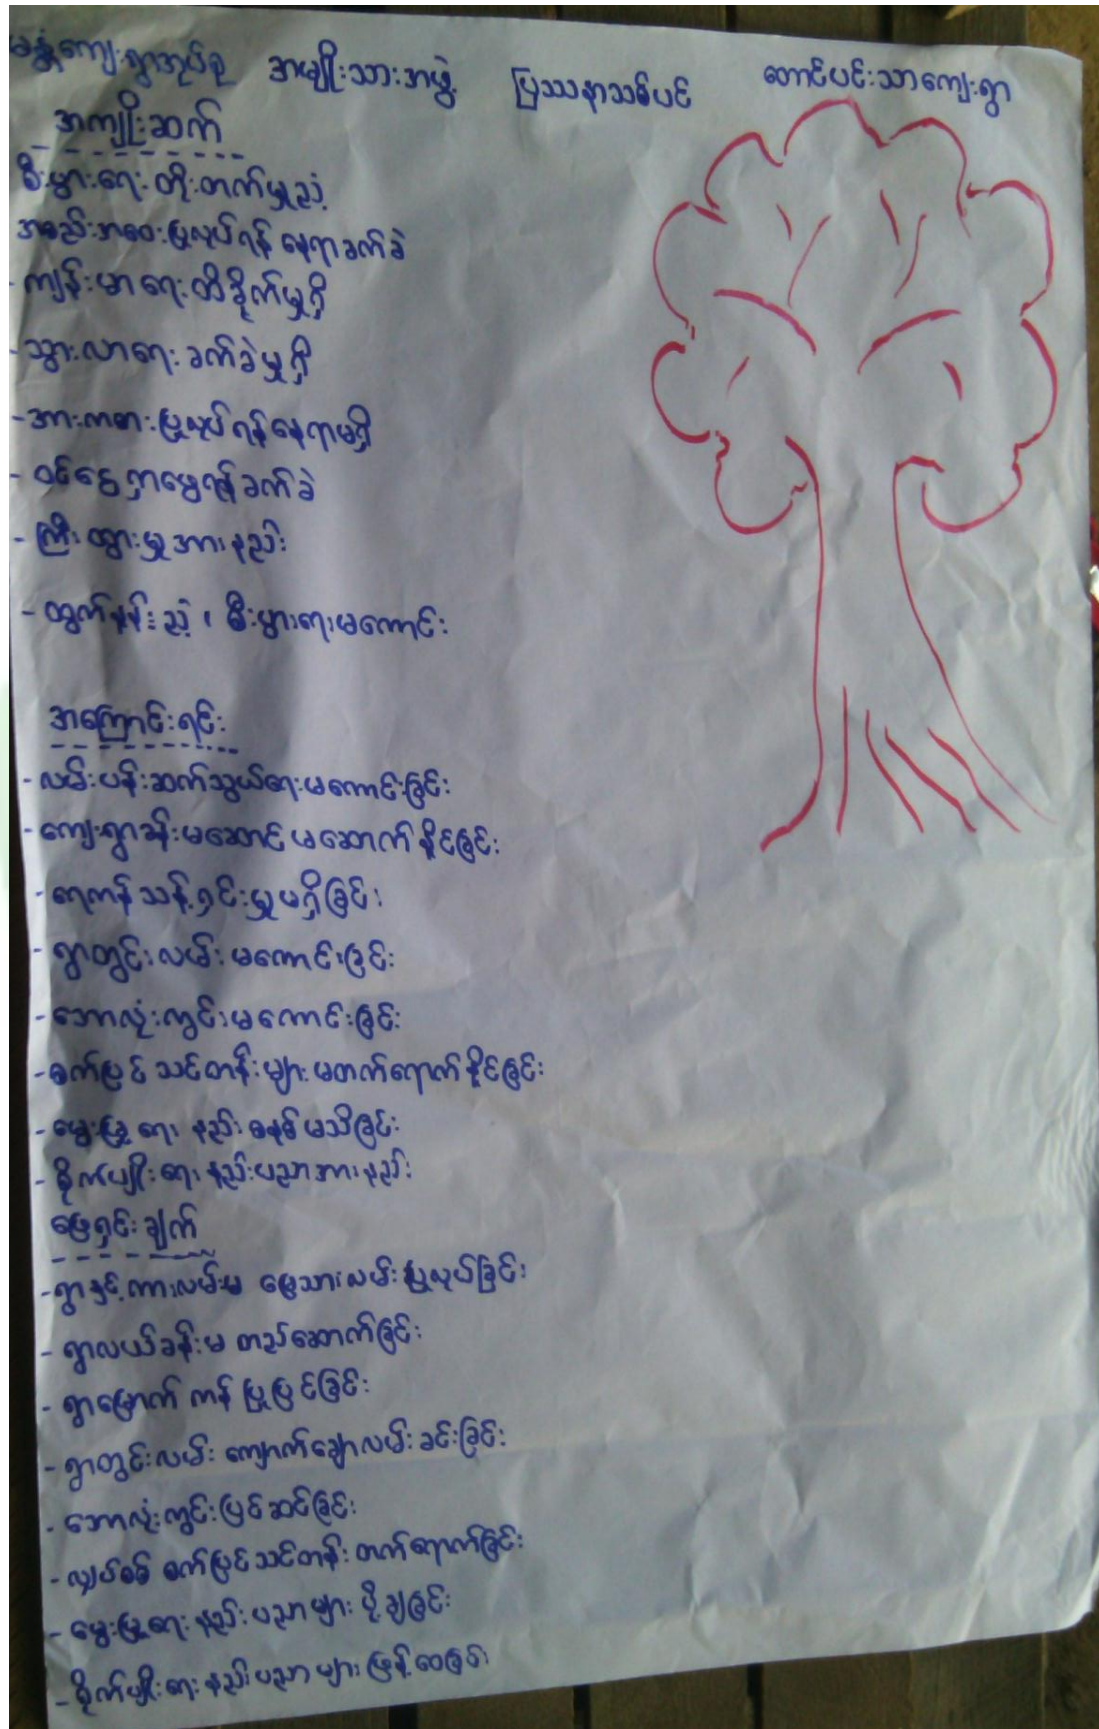 မန္တုံကျေးရွာအုပ်စု အမျိုးသားအဖွဲ့ ပြဿနာသစ်ပင် တောင်ပင်းသာကျေးရွာ
အကျိုးဆက်
စီးပွားရေးတိုးတက်မှုညံ့
အစည်းအဝေးပြုလုပ်ရန် နေရာခက်ခဲ
- ကျန်းမာရေးထိခိုက်မှုရှိ
- သွားလာရေးခက်ခဲမှုရှိ
- အားကစားပြုလုပ်ရန်နေရာမရှိ
- ဝင်ငွေရှာဖွေရန်ခက်ခဲ
- ကြီးထွားမှုအားနည်း
- ထွက်နှုန်းညံ့၊ စီးပွားရေးမကောင်း
အကြောင်းရင်း
- လမ်းပန်းဆက်သွယ်ရေးမကောင်းခြင်း
- ကျေးရွာခန်းမဆောင်မဆောက်နိုင်ခြင်း
- ရေကန်သန့်ရှင်းမှုမရှိခြင်း
- ရွာတွင်းလမ်းမကောင်းခြင်း
- ဘောလုံးကွင်းမကောင်းခြင်း
- စက်ပြင်သင်တန်းများမတက်ရောက်နိုင်ခြင်း
- မွေးမြူရေးနည်းစနစ်မသိခြင်း
- စိုက်ပျိုးရေးနည်းပညာအားနည်း
ဖြေရှင်းချက်
- ရွာနှင့်ကားလမ်းမ မြေသားလမ်းပြုလုပ်ခြင်း
- ရွာလယ်ခန်းမ တည်ဆောက်ခြင်း
- ရွာမြောက်ကန်ပြုပြင်ခြင်း
- ရွာတွင်းလမ်း ကျောက်ချောလမ်းခင်းခြင်း
- ဘောလုံးကွင်းပြင်ဆင်ခြင်း
- လျှပ်စစ် စက်ပြင်သင်တန်းတက်ရောက်ခြင်း
- မွေးမြူရေးနည်းပညာများ ပို့ချခြင်း
- စိုက်ပျိုးရေးနည်းပညာများဖြန့်ဝေခြင်း